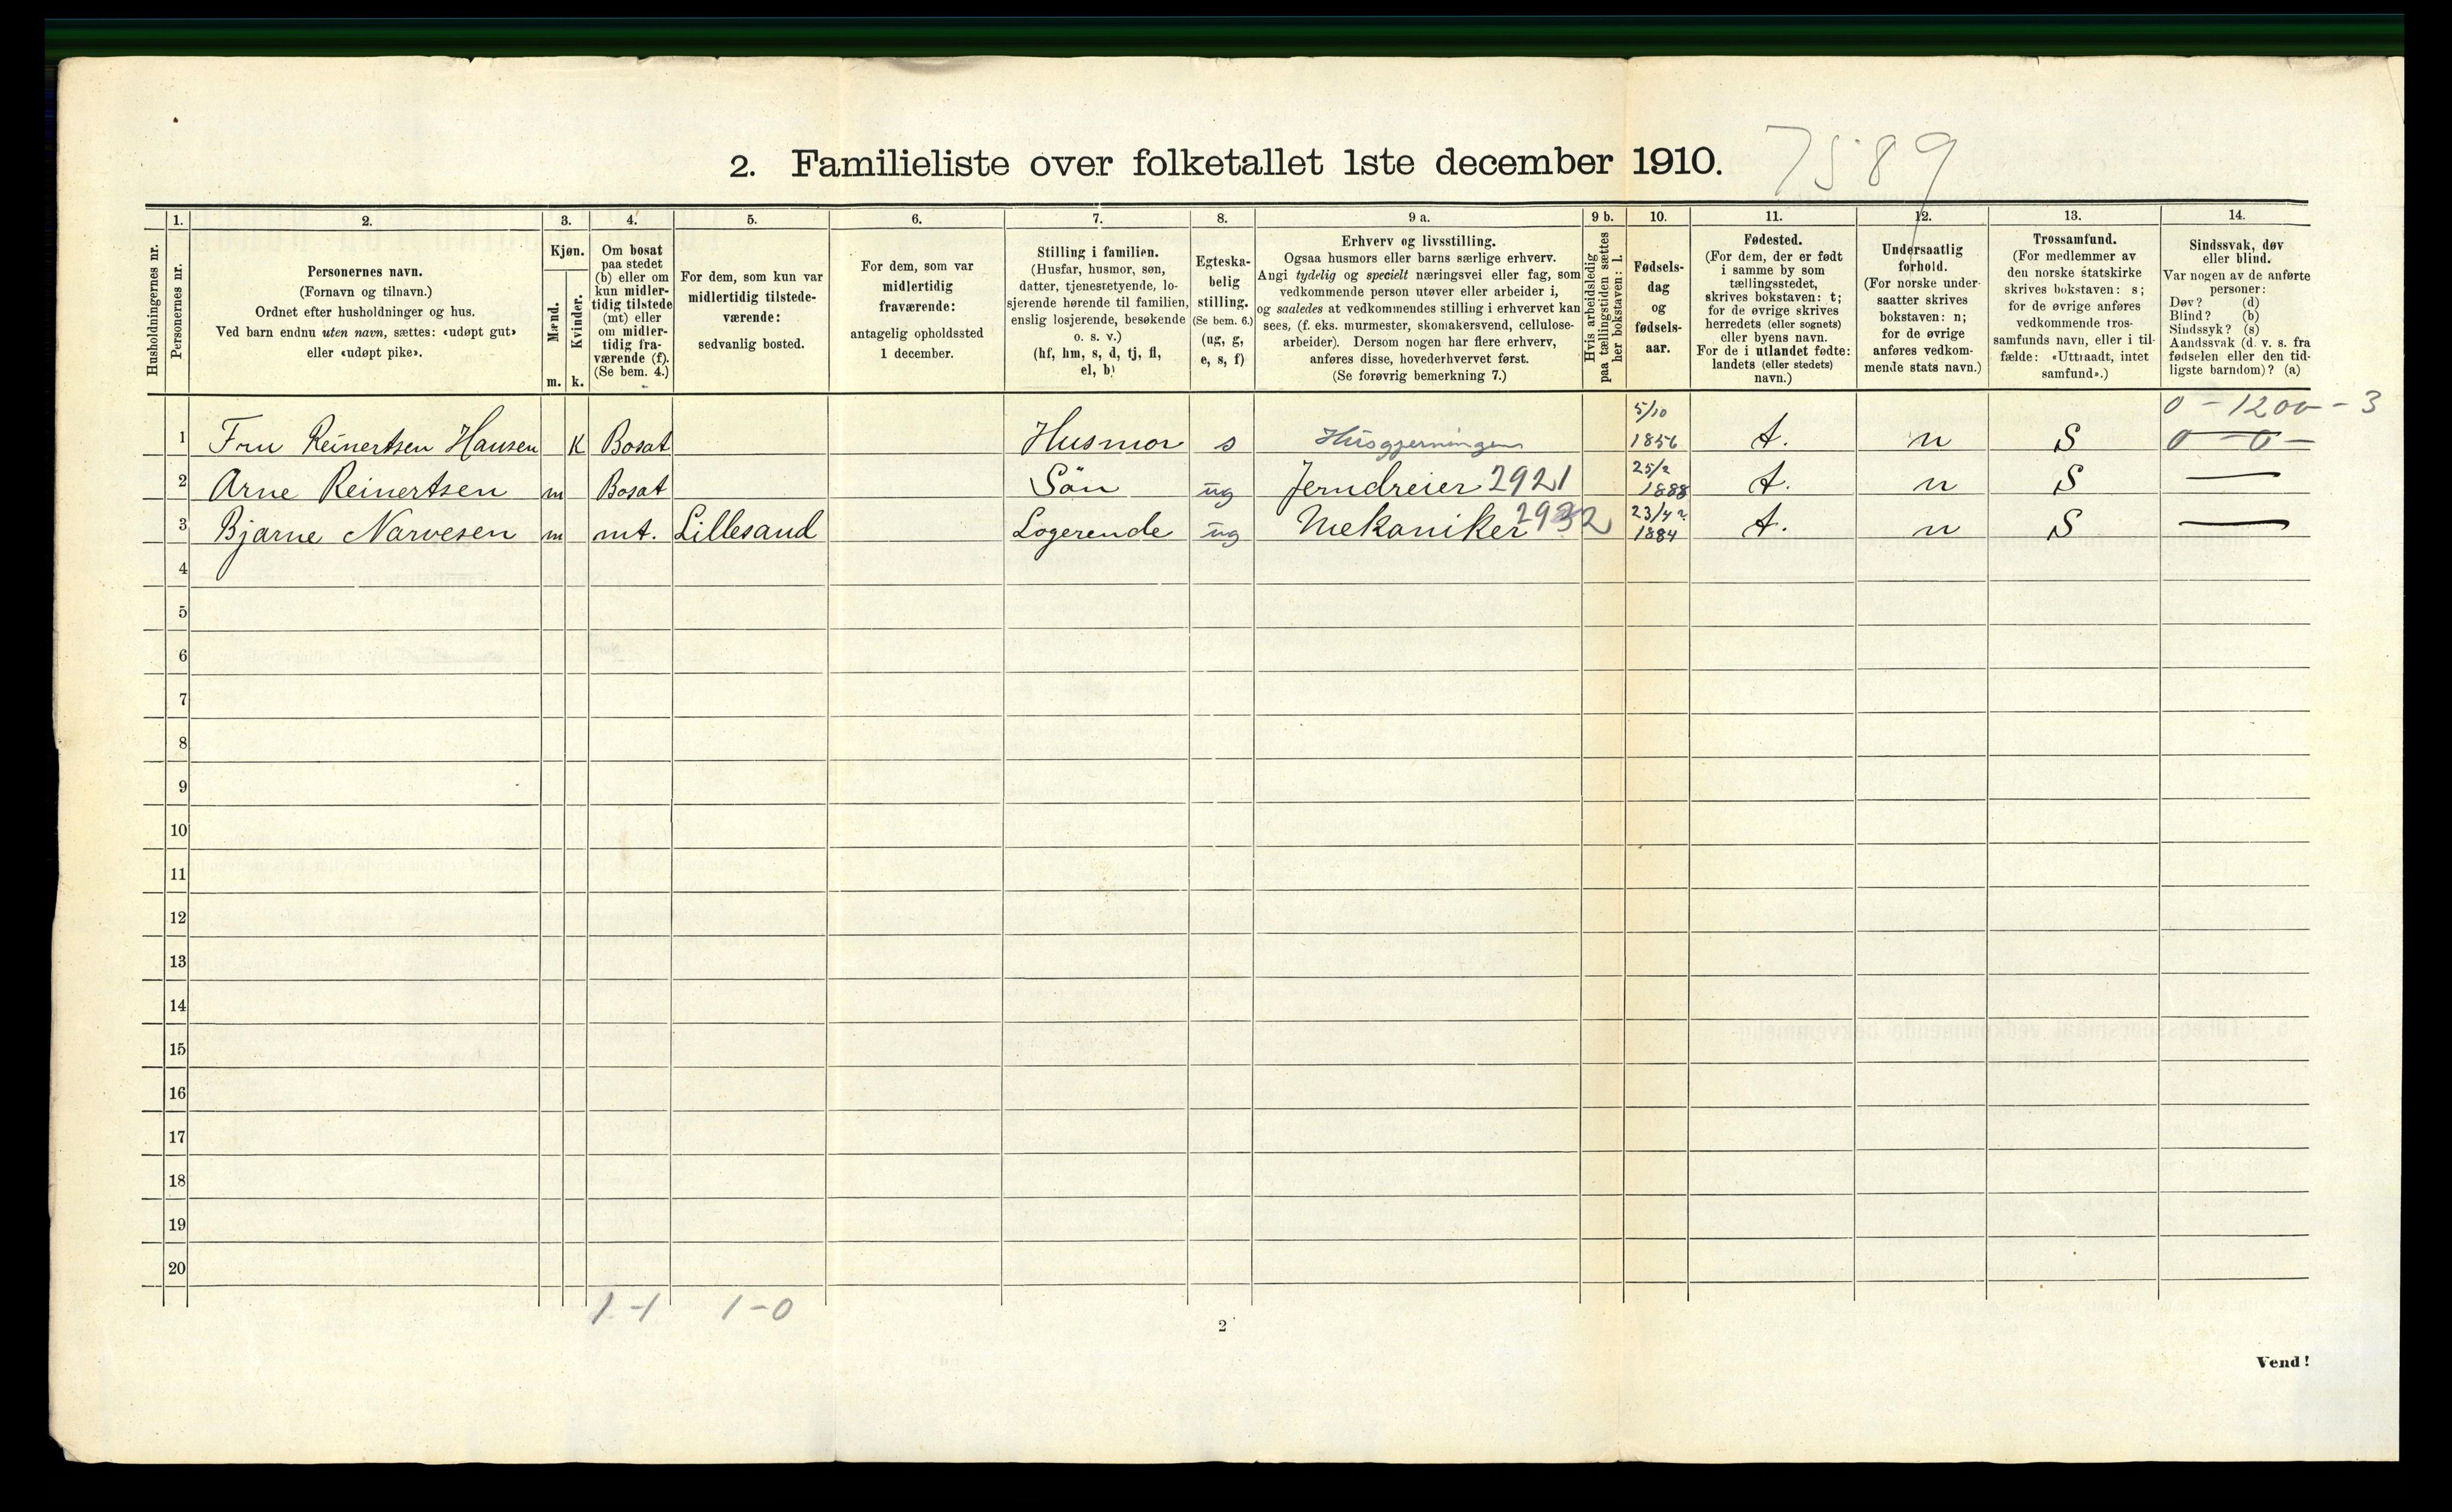 2. Familieliste over folketallet 1ste december 1910. 7589
Husholdningernes nr.
1. Personernes nr.
2. Personernes navn.
(Fornavn og tilnavn.)
Ordnet efter husholdninger og hus.
Ved barn endnu uten navn, sættes: «udøpt gut»
eller «udøpt pike».
3. Kjøn.
Mænd. m.
Kvinder. k.
4. Om bosat
paa stedet
(b) eller om
kun midler-
tidig tilstede
(mt) eller
om midler-
tidig fra-
værende (f).
(Se bem. 4.)
5. For dem, som kun var
midlertidig tilstede-
værende:
sedvanlig bosted.
6. For dem, som var
midlertidig
fraværende:
antagelig opholdssted
1 december.
7. Stilling i familien.
(Husfar, husmor, søn,
datter, tjenestetyende, lo-
sjerende hørende til familien,
enslig losjerende, besøkende
o. s. v.)
(hf, hm, s, d, tj, fl,
el, b)
8. Egteska-
belig
stilling.
(Se bem. 6.)
(ug, g,
e, s, f)
9 a. Erhverv og livsstilling.
Ogsaa husmors eller barns særlige erhverv.
Angi tydelig og specielt næringsvei eller fag, som
vedkommende person utøver eller arbeider i,
og saaledes at vedkommendes stilling i erhvervet kan
sees, (f. eks. murmester, skomakersvend, cellulose-
arbeider). Dersom nogen har flere erhverv,
anføres disse, hovederhvervet først.
(Se forøvrig bemerkning 7.)
9 b. Hvis arbeidsledig
paa tællingstiden sættes
her bokstaven: l.
10. Fødsels-
dag
og
fødsels-
aar.
11. Fødested.
(For dem, der er født
i samme by som
tællingsstedet,
skrives bokstaven: t;
for de øvrige skrives
herredets (eller sognets)
eller byens navn.
For de i utlandet fødte:
landets (eller stedets)
navn.)
12. Undersaatlig
forhold.
(For norske under-
saatter skrives
bokstaven: n;
for de øvrige
anføres vedkom-
mende stats navn.)
13. Trossamfund.
(For medlemmer av
den norske statskirke
skrives bokstaven: s;
for de øvrige anføres
vedkommende tros-
samfunds navn, eller i til-
fælde: «Uttraadt, intet
samfund».)
14. Sindssvak, døv
eller blind.
Var nogen av de anførte
personer:
Døv? (d)
Blind? (b)
Sindssyk? (s)
Aandssvak (d. v. s. fra
fødselen eller den tid-
ligste barndom)? (a)
0 - 1200 - 3
1 Fru Reinertsen Hansen K Bosat Husmor s Husgjerningen 5/10 1856 t. n S 0 - 0 -
2 Arne Reinertsen m Bosat Sön ug Jerndreier 2921 25/2 1888 t. n S —
3 Bjarne Narvesen m mt. Lillesand Logerende ug Mekaniker 2932 23/4 1884 t. n S —
4
5
6
7
8
9
10
11
12
13
14
15
16
17
18
19
20
1-1 1-0
2
Vend!